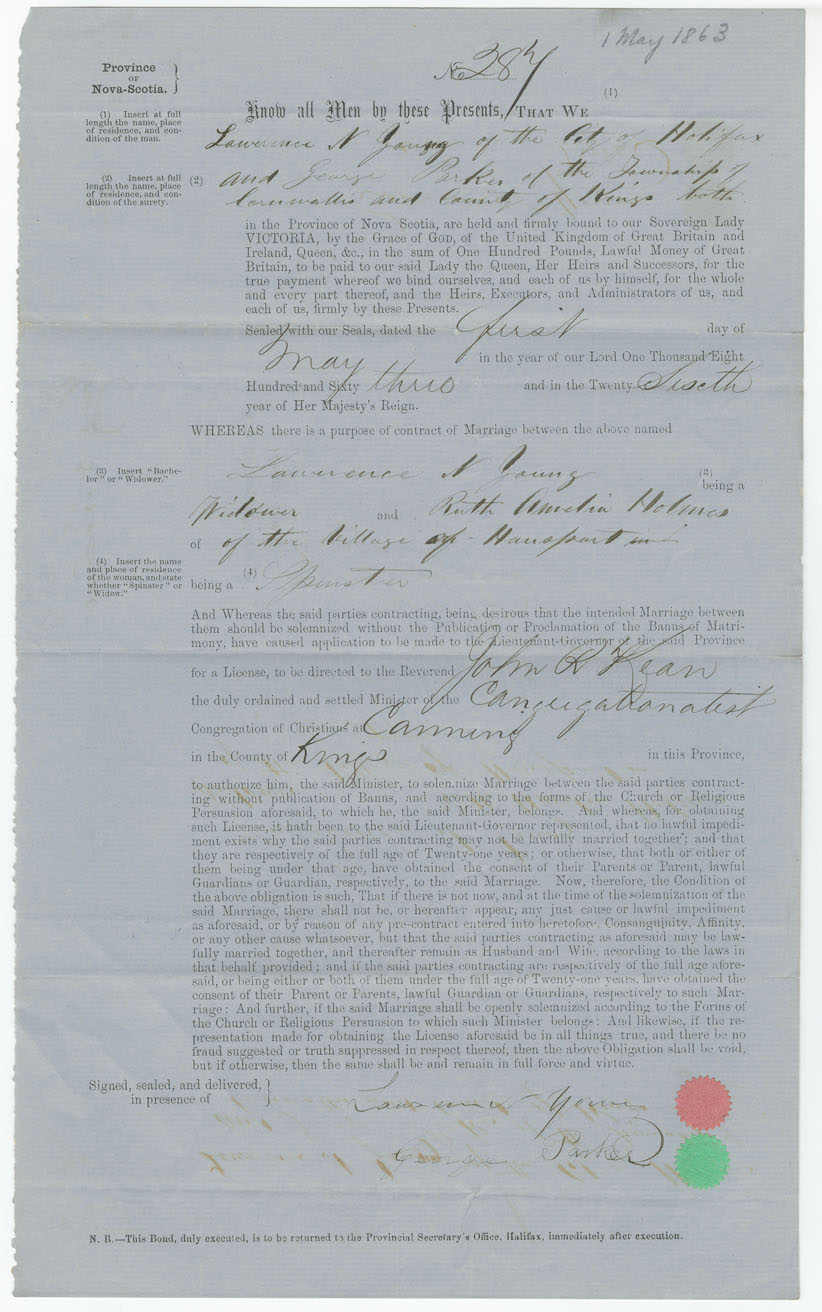 1 May 1863
No 287
Province
OF
Nova-Scotia.
(1)
Know all Men by these Presents, THAT WE
(1) Insert at full
length the name, place
of residence, and con-
dition of the man.
Lawrence N Young of the City of Halifax
(2) Insert at full
length the name, place
of residence, and con-
dition of the surety.
(2) and George Parker of the Township of
Cornwallis and County of Kings both
in the Province of Nova Scotia, are held and firmly bound to our Sovereign Lady
VICTORIA, by the Grace of God, of the United Kingdom of Great Britain and
Ireland, Queen, &c., in the sum of One Hundred Pounds, Lawful Money of Great
Britain, to be paid to our said Lady the Queen, Her Heirs and Successors, for the
true payment whereof we bind ourselves, and each of us by himself, for the whole
and every part thereof, and the Heirs, Executors, and Administrators of us, and
each of us, firmly by these Presents.
Sealed with our Seals, dated the first day of
May in the year of our Lord One Thousand Eight
Hundred and Sixty three and in the Twenty Sixth
year of Her Majesty's Reign.
WHEREAS there is a purpose of contract of Marriage between the above named
(3) Insert "Bache-
lor" or "Widower."
Lawrence N Young (3) being a
Widower and Ruth Amelia Holmes
of of the Village of Hansport
(4) Insert the name
and place of residence
of the woman, and state
whether "Spinster" or
"Widow."
being a (4) Spinster
And Whereas the said parties contracting, being desirous that the intended Marriage between
them should be solemnized without the Publication or Proclamation of the Banns of Matri-
mony, have caused application to be made to the Lieutenant-Governor of the said Province
for a License, to be directed to the Reverend John R Kean
the duly ordained and settled Minister of the Congregationatist
Congregation of Christians at Canning
in the County of Kings in this Province,
to authorize him, the said Minister, to solemnize Marriage between the said parties contract-
ing without publication of Banns, and according to the forms of the Church or Religious
Persuasion aforesaid, to which he, the said Minister, belongs. And whereas, for obtaining
such License, it hath been to the said Lieutenant-Governor represented, that no lawful impedi-
ment exists why the said parties contracting may not be lawfully married together; and that
they are respectively of the full age of Twenty-one years; or otherwise, that both or either of
them being under that age, have obtained the consent of their Parents or Parent, lawful
Guardians or Guardian, respectively, to the said Marriage. Now, therefore, the Condition of
the above obligation is such, That if there is not now, and at the time of the solemnization of the
said Marriage, there shall not be, or hereafter appear, any just cause or lawful impediment
as aforesaid, or by reason of any pre-contract entered into heretofore, Consanguinity, Affinity,
or any other cause whatsoever, but that the said parties contracting as aforesaid may be law-
fully married together, and thereafter remain as Husband and Wife, according to the laws in
that behalf provided; and if the said parties contracting are respectively of the full age afore-
said, or being either or both of them under the full age of Twenty-one years, have obtained the
consent of their Parent or Parents, lawful Guardian or Guardians, respectively to such Mar-
riage: And further, if the said Marriage shall be openly solemnized according to the Forms of
the Church or Religious Persuasion to which such Minister belongs: And likewise, if the re-
presentation made for obtaining the License aforesaid be in all things true, and there be no
fraud suggested or truth suppressed in respect thereof, then the above Obligation shall be void,
but if otherwise, then the same shall be and remain in full force and virtue.
Signed, sealed, and delivered,
in presence of
Lawrence N Young
George Parker
N. B.—This Bond, duly executed, is to be returned to the Provincial Secretary's Office, Halifax, immediately after execution.